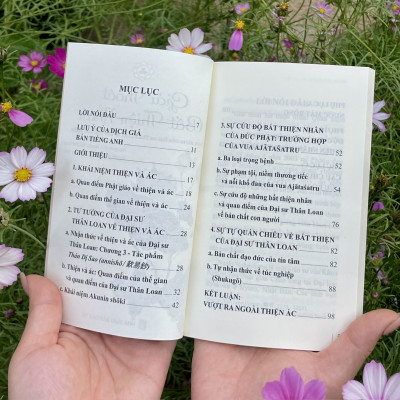 MỤC LỤC
LỜI NÓI ĐẦU 7
LƯU Ý CỦA DỊCH GIẢ
BẢN TIẾNG ANH 11
GIỚI THIỆU 13
1. KHÁI NIỆM THIỆN VÀ ÁC 18
a. Quan điểm Phật giáo về thiện và ác 18
b. Quan điểm thế gian về thiện và ác 24
2. TƯ TƯỞNG CỦA ĐẠI SƯ
THÂN LOAN VỀ THIỆN VÀ ÁC 28
a. Nhận thức về thiện và ác của Đại sư
Thân Loan: Chương 3 - Tác phẩm
Thán Dị Sao (tannishō/歎異鈔) 28
b. Thiện và ác: Quan điểm của thế gian
và quan điểm của Đại sư Thân Loan 32
c. Khái niệm Akunin shōki 42
3. SỰ CỨU ĐỘ BẤT THIỆN NHÂN
CỦA ĐỨC PHẬT: TRƯỜNG HỢP
CỦA VUA AJĀTASATRU 52
a. Ba loại trọng bệnh 52
b. Sự phạm tội, niềm thương tiếc
và nỗi khổ đau của vua Ajātasatru 54
c. Sự cứu độ những bất thiện nhân
và quan điểm của Đại sư Thân Loan
về bản chất con người 76
4. SỰ TỰ QUÁN CHIẾU VỀ BẤT THIỆN
CỦA ĐẠI SƯ THÂN LOAN 82
a. Bản chất đạo đức của tín tâm 82
b. Tự nhận thức về túc nghiệp
(Shukugō) 86
KẾT LUẬN:
VƯỢT RA NGOÀI THIỆN ÁC 98